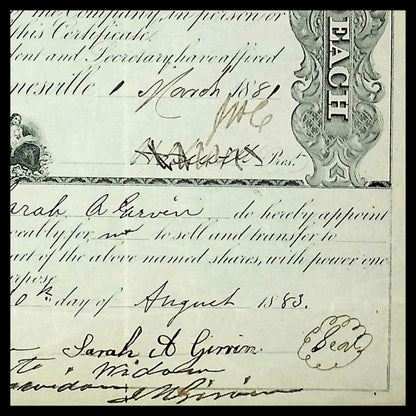 the Company, in person or
this Certificate.
dent and Secretary have affixed
nesville 1 March 1881
EACH
Prest.
arah A Girvin do hereby appoint
ocably for me to sell and transfer to
art of the above named shares, with power one
rpose
0th day of August 1883.
Sarah A Girvin. Seal
Widow